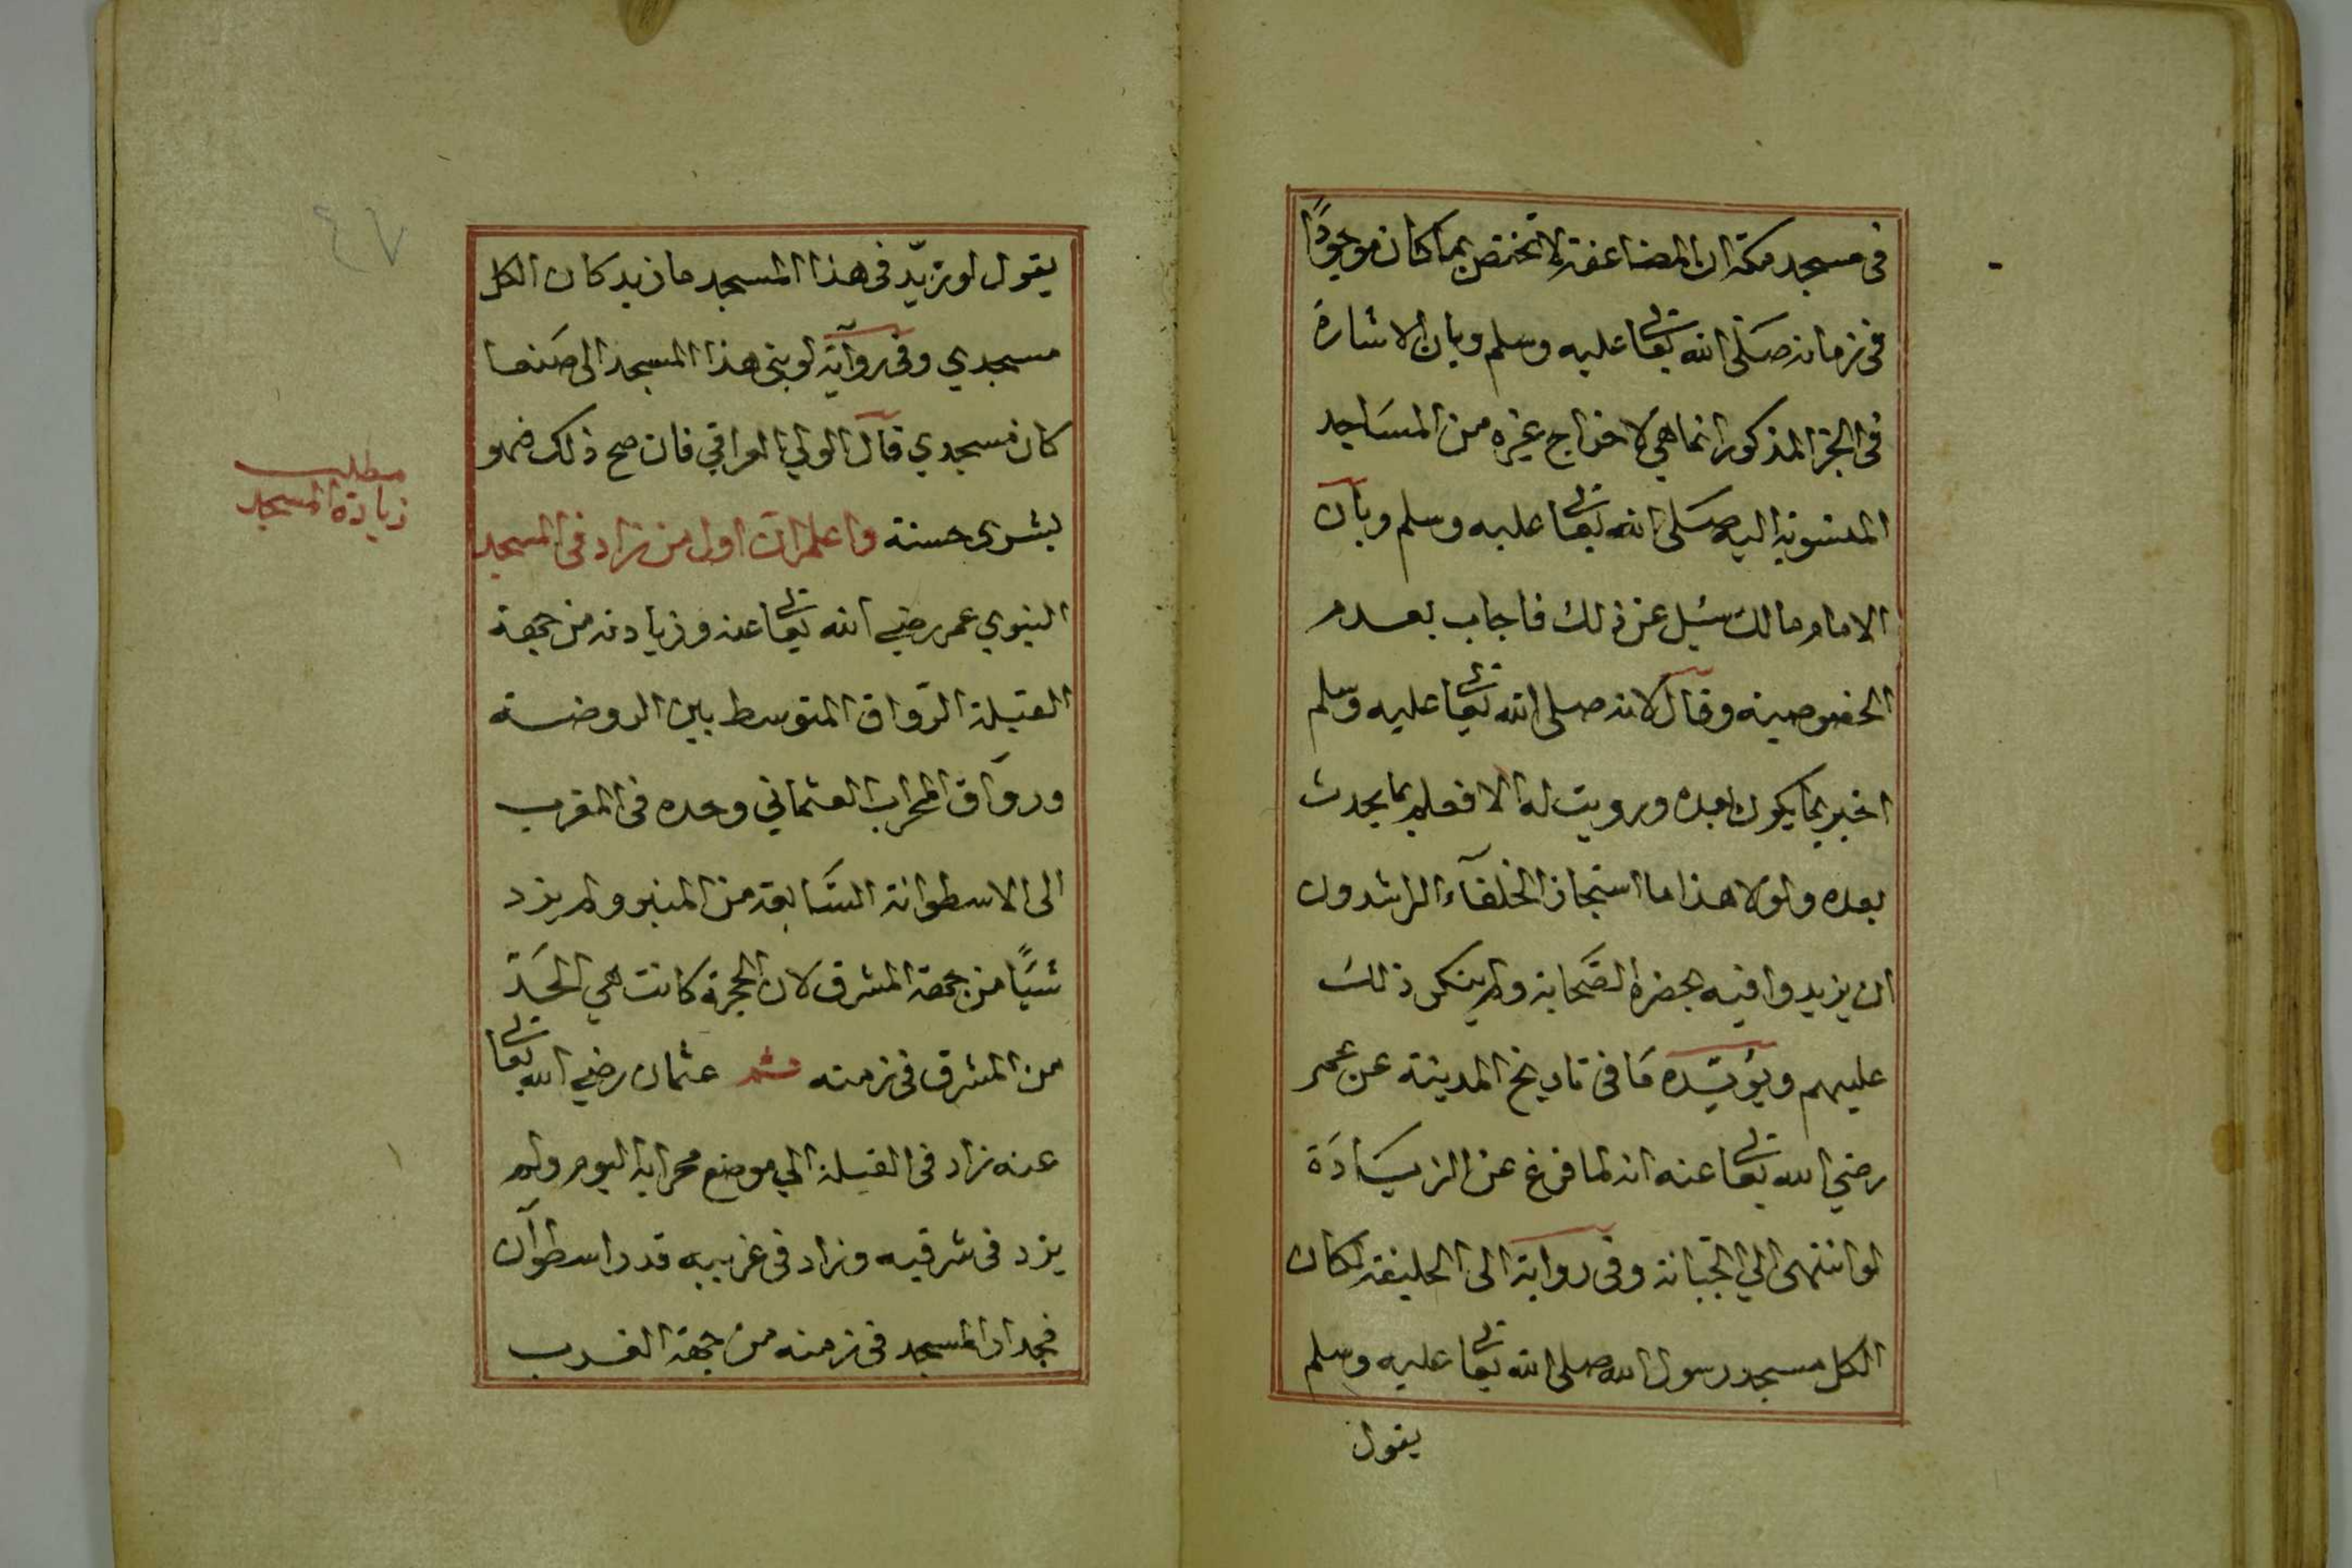 في مسجد مكة ان المضاعفة لا تختص بما كان موجودًا
في زمانه صَلّى الله تعالى عليه وسلم وبان الاشارة
في الخبر المذكور انما هي لاخراج غيره من المسَاجد
المنسوبة اليه صَلى الله تعالى عليه وسلم وبآن
الامام مالك سئيل عن ذلك فاجاب بعدم
الخصوصية وقآل لانه صلى الله تعالى عليه وسلم
اخبر بما يكون بعده ورويت له الارض فعلم بما يحدث
بعده ولولا هذا ما استجاز الخلفآء الراشدون
ان يزيدوا فيه بحضرة الصَّحابة ولم ينكر ذلك
عليهم ويؤيّده مَا في تاريخ المدينة عن عمر
رضي الله تعالى عنه انه لما فرغ عن الزيَادَة
لو انتهى الي الجبّانة وفي رواية الى الحليفة لكان
الكل مسجد رسول الله صلى الله تعالى عليه وسلم
يقول
٤٧
يقول لو زيّد في هذا المسجد ما زيد كان الكل
مسجدي وفي روآية لو بني هذا المسجد الى صَنعا
كان مسجدي قآل الولي العراقي فان صح ذلك فهو
بشرى حسنة واعلم ان اول من زاد في المسجد
النبوي عمر رضي الله تعالى عنه وزيادته من جهة
القبلة الرّواق المتوسط بين الروضة
ورواق المحراب العثماني وحده في المغرب
الى الاسطوانة السَّابعة من المنبر ولم يزد
شيَأً من جهة المشرق لان الحجرة كانت هي الحَدّ
من المشرق في زمنه ثم عثمان رضي الله تعالى
عنه زاد في القبلة الي موضع محرابه اليوم ولم
يزد في شرقيه وزاد في غربيه قدر اسطوآن
فجدار المسجد في زمنه من جهة الغرب
مطلب
زيادة المسجد